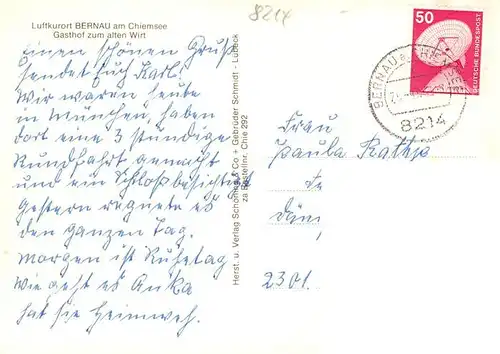 Luftkurort BERNAU am Chiemsee
Gasthof zum alten Wirt
Einen schönen Gruß
sendet Euch Karl!
Wir waren heute
in München, haben
dort eine 3 stündige
Rundfahrt gemacht
und ein Schloß besichtigt
Gestern regnete es
den ganzen Tag.
morgen ist Ruhetag
Wie geht es Anika
hat sie Heimweh.
Herst. u. Verlag Schöning & Co + Gebrüder Schmidt - Lübeck
za Bestellnr. Chie 292
8214
50
DEUTSCHE BUNDESPOST
BERNAU
8214
Frau
Paula Rathje
Dän
2301